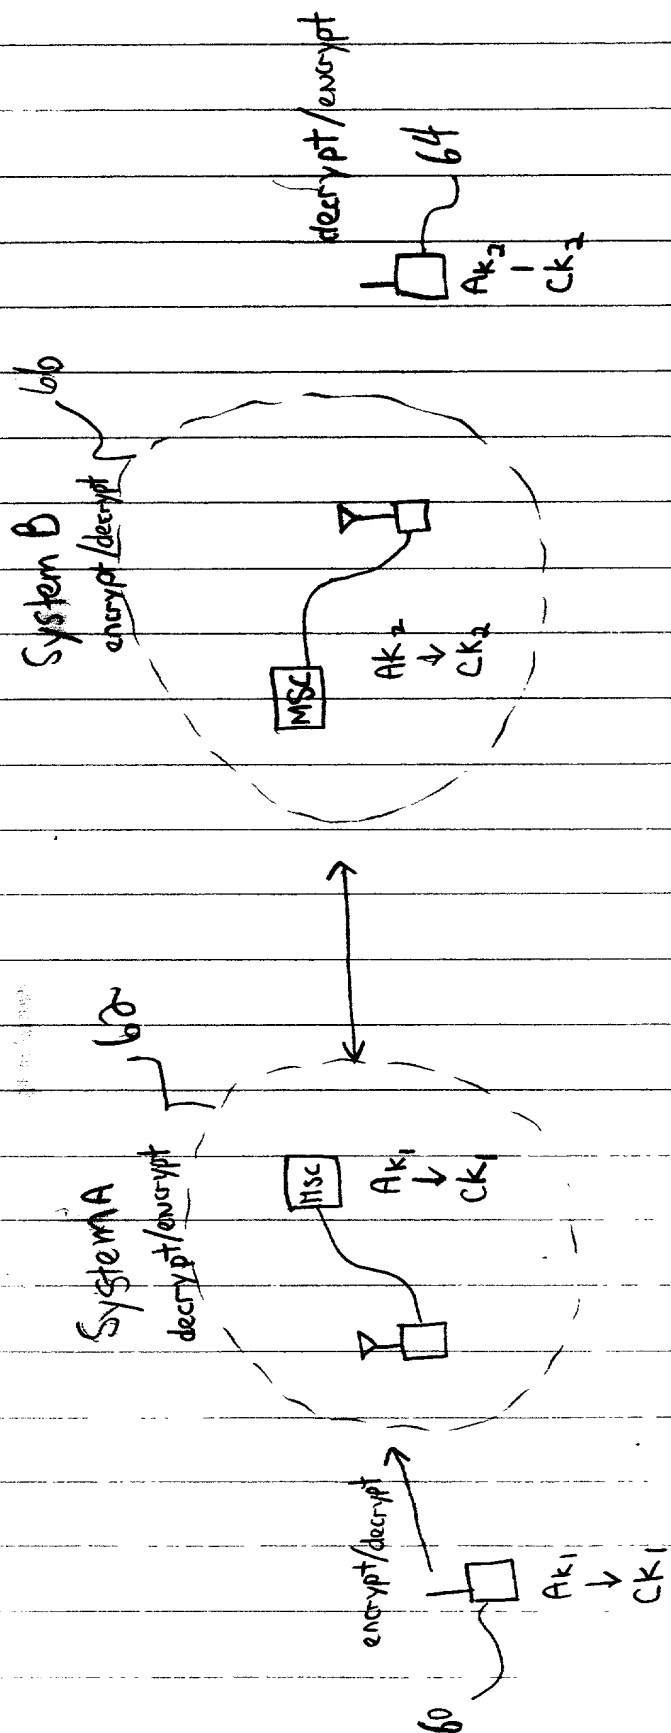 60
encrypt/decrypt
AK1
↓
CK1
System A
decrypt/encrypt
62
MSC
AK1
↓
CK1
System B
encrypt/decrypt
66
MSC
AK2
↓
CK2
decrypt/encrypt
64
AK2
CK2